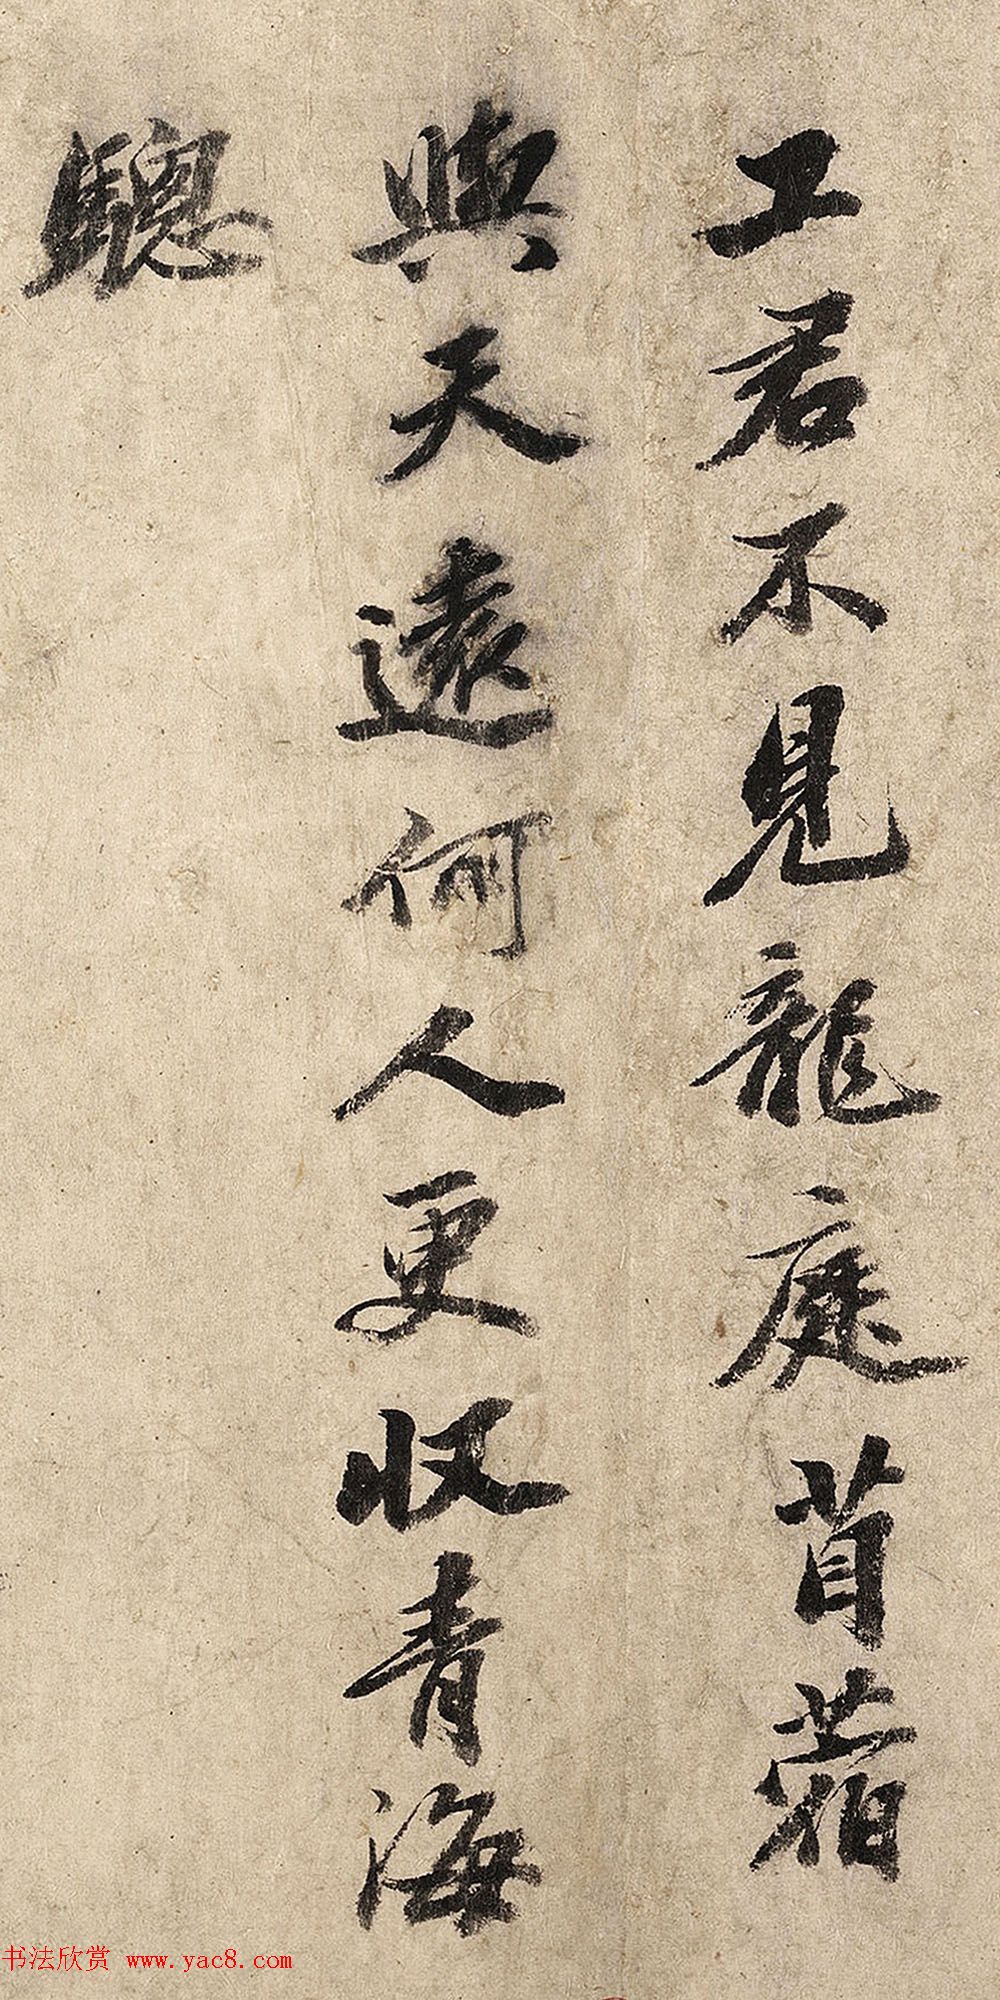 工君不見龍庭苜蓿
與天遠何人更收青海
驄
书法欣赏 www.yac8.com